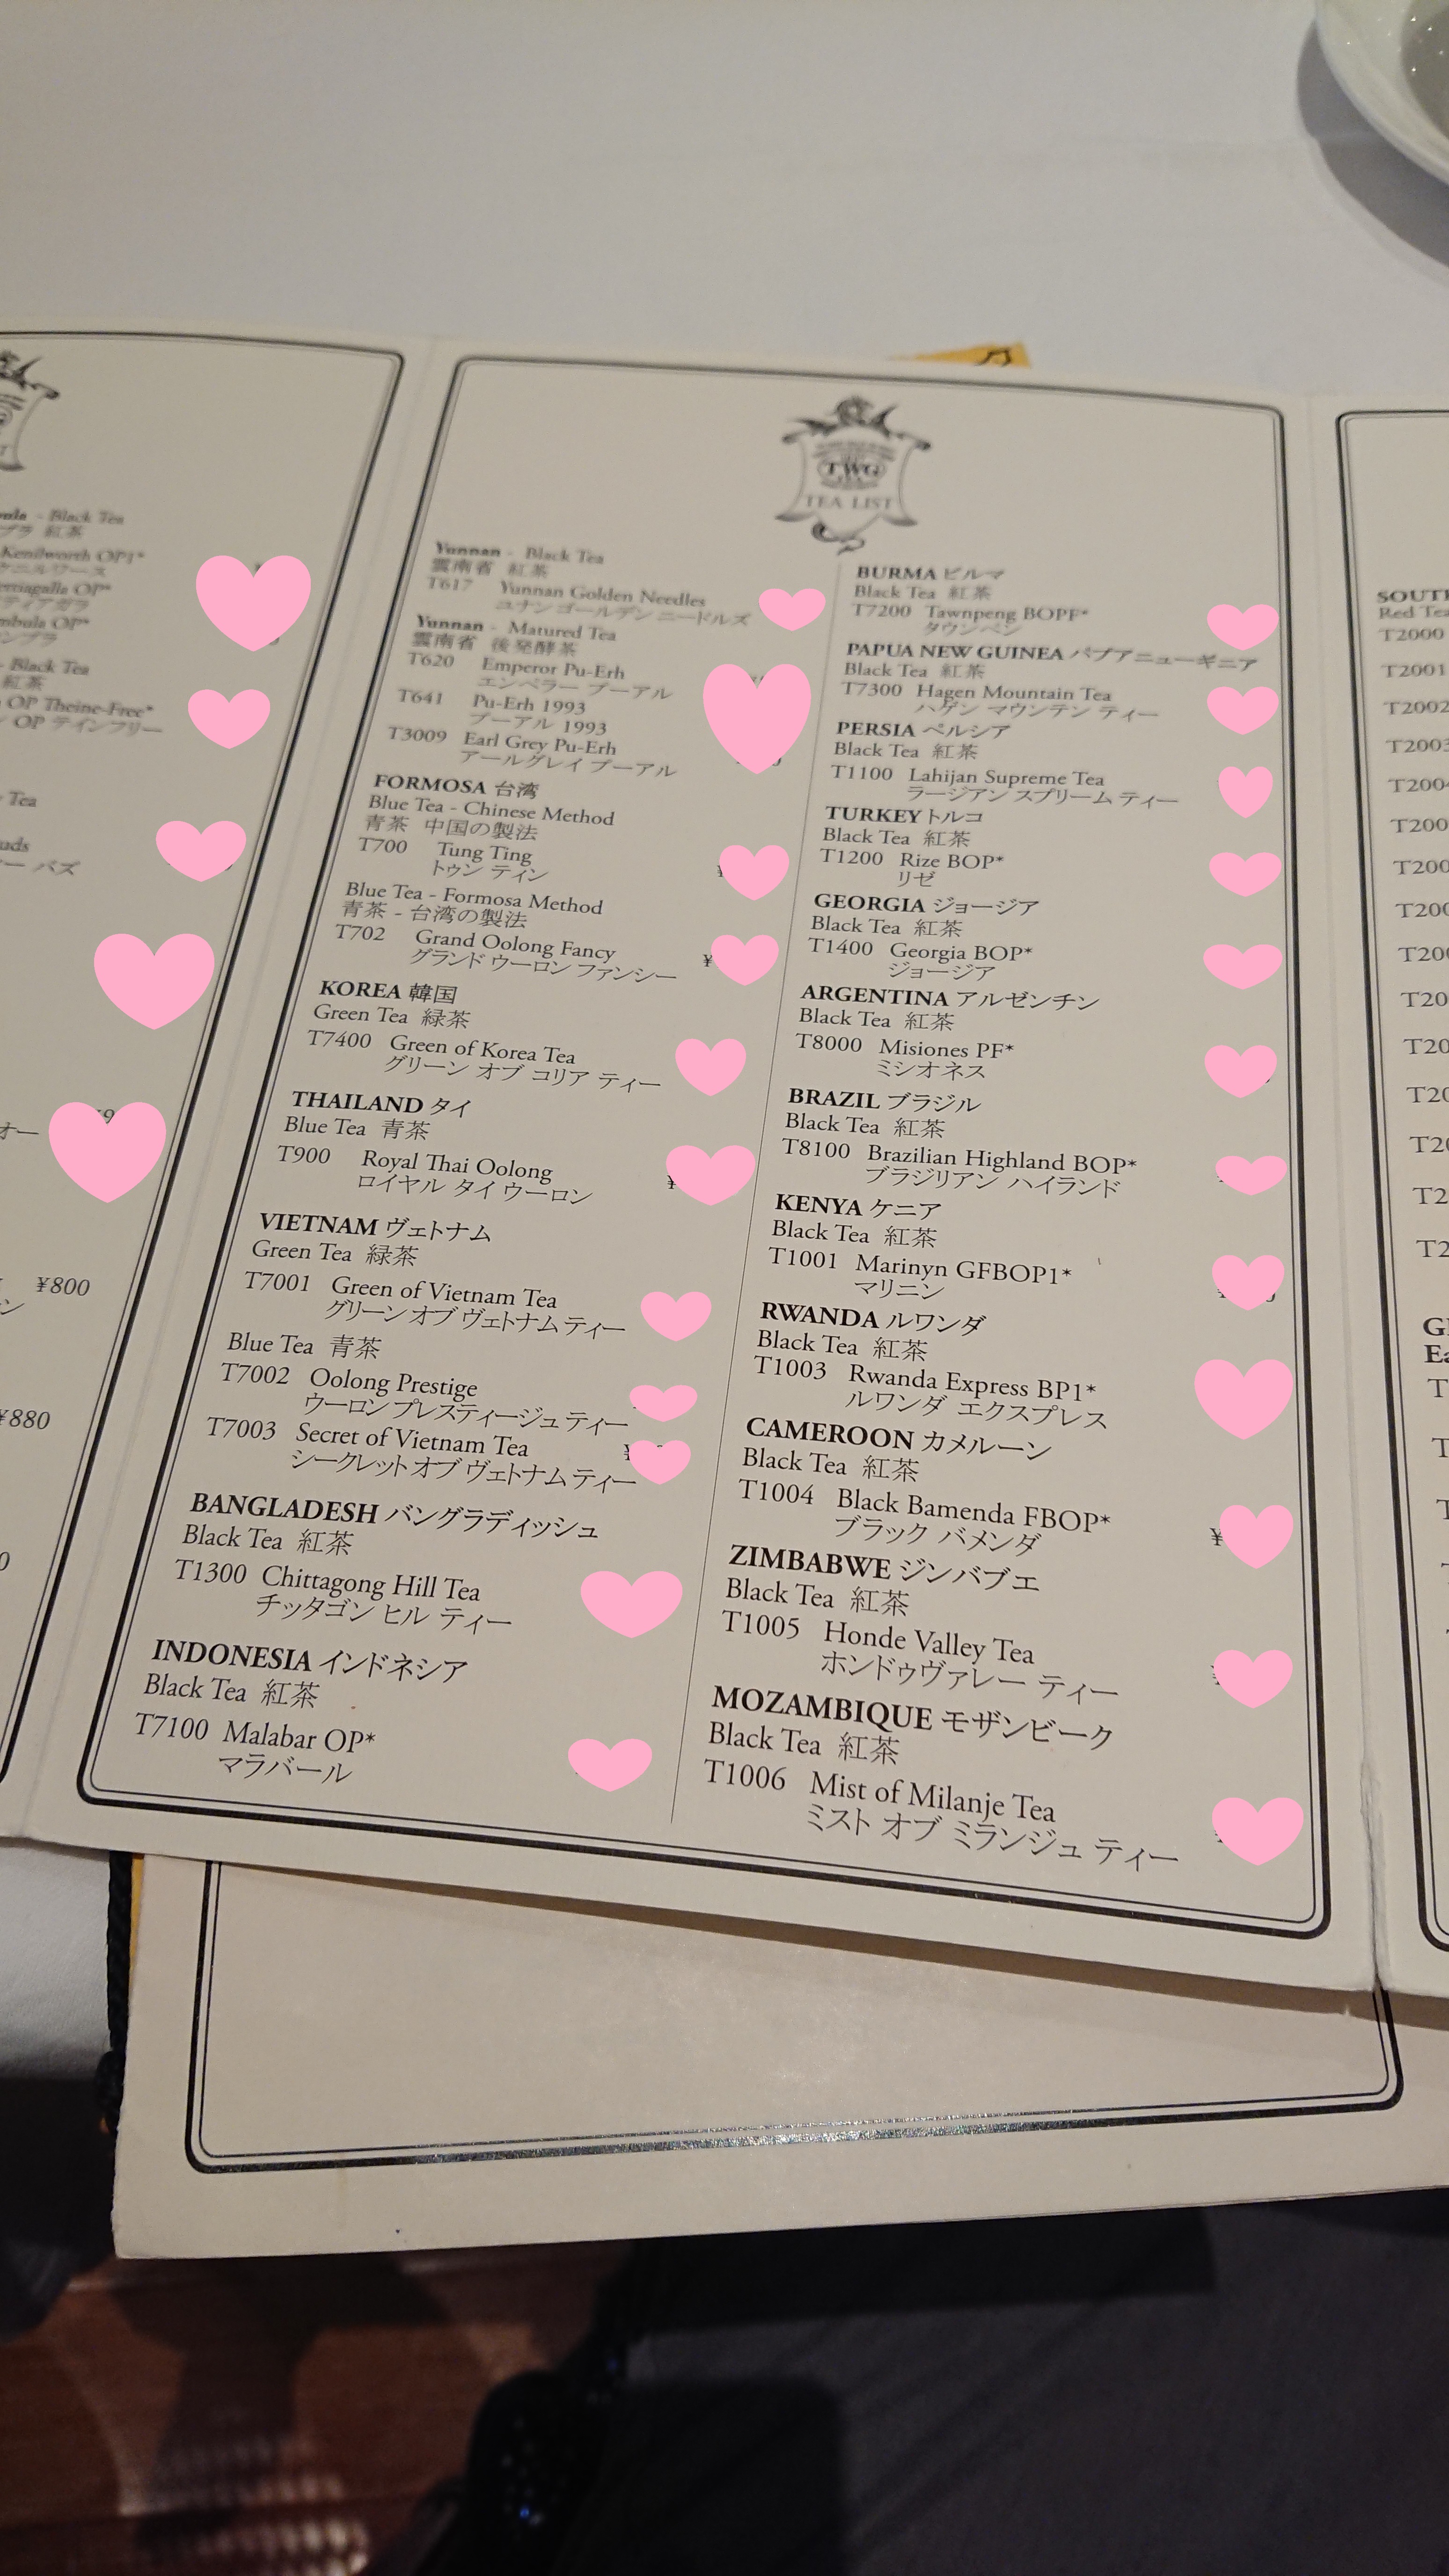 - Black Tea
紅茶
Kenilworth OP1*
OP*
OP*
- Black Tea
紅茶
OP Theine-Free*
OP テインフリー
Tea
バズ
¥800
¥880
TWG
TEA LIST
Yunnan - Black Tea
雲南省 紅茶
T617 Yunnan Golden Needles
ユナン ゴールデン ニードルズ
Yunnan - Matured Tea
雲南省 後発酵茶
T620 Emperor Pu-Erh
エンペラー プーアル
T641 Pu-Erh 1993
プーアル 1993
T3009 Earl Grey Pu-Erh
アールグレイ プーアル
FORMOSA 台湾
Blue Tea - Chinese Method
青茶 中国の製法
T700 Tung Ting
トゥン ティン
Blue Tea - Formosa Method
青茶 - 台湾の製法
T702 Grand Oolong Fancy ¥
グランド ウーロン ファンシー
KOREA 韓国
Green Tea 緑茶
T7400 Green of Korea Tea
グリーン オブ コリア ティー
THAILAND タイ
Blue Tea 青茶
T900 Royal Thai Oolong ¥
ロイヤル タイ ウーロン
VIETNAM ヴェトナム
Green Tea 緑茶
T7001 Green of Vietnam Tea
グリーン オブ ヴェトナム ティー
Blue Tea 青茶
T7002 Oolong Prestige
ウーロン プレスティージュ ティー
T7003 Secret of Vietnam Tea
シークレット オブ ヴェトナム ティー
BANGLADESH バングラディッシュ
Black Tea 紅茶
T1300 Chittagong Hill Tea
チッタゴン ヒル ティー
INDONESIA インドネシア
Black Tea 紅茶
T7100 Malabar OP*
マラバール
BURMA ビルマ
Black Tea 紅茶
T7200 Tawnpeng BOPF*
タウンペン
PAPUA NEW GUINEA パプアニューギニア
Black Tea 紅茶
T7300 Hagen Mountain Tea
ハゲン マウンテン ティー
PERSIA ペルシア
Black Tea 紅茶
T1100 Lahijan Supreme Tea
ラージアン スプリーム ティー
TURKEY トルコ
Black Tea 紅茶
T1200 Rize BOP*
リゼ
GEORGIA ジョージア
Black Tea 紅茶
T1400 Georgia BOP*
ジョージア
ARGENTINA アルゼンチン
Black Tea 紅茶
T8000 Misiones PF*
ミシオネス
BRAZIL ブラジル
Black Tea 紅茶
T8100 Brazilian Highland BOP*
ブラジリアン ハイランド
KENYA ケニア
Black Tea 紅茶
T1001 Marinyn GFBOP1*
マリニン
RWANDA ルワンダ
Black Tea 紅茶
T1003 Rwanda Express BP1*
ルワンダ エクスプレス
CAMEROON カメルーン
Black Tea 紅茶
T1004 Black Bamenda FBOP* ¥
ブラック バメンダ
ZIMBABWE ジンバブエ
Black Tea 紅茶
T1005 Honde Valley Tea
ホンドゥヴァレー ティー
MOZAMBIQUE モザンビーク
Black Tea 紅茶
T1006 Mist of Milanje Tea
ミスト オブ ミランジュ ティー
SOUTH
Red Tea
T2000
T2001
T2002
T2003